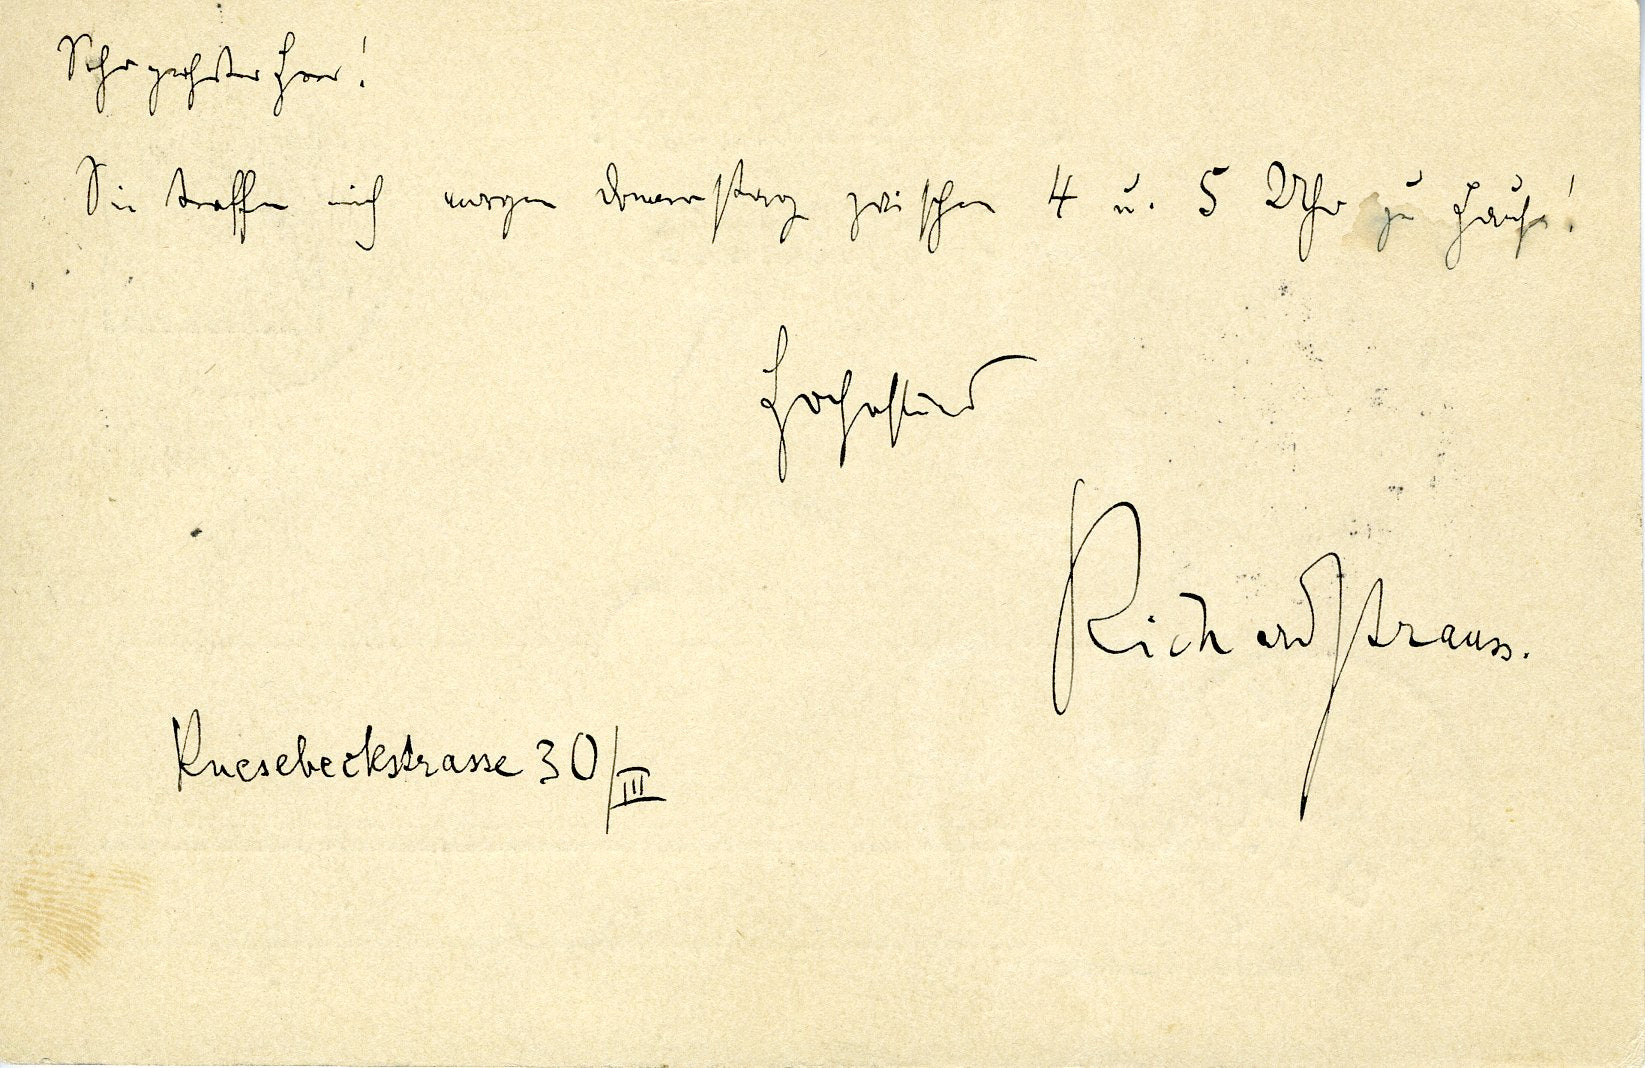 Sehr geehrter Herr!
Sie treffen mich morgen Donnerstag zwischen 4 u. 5 Uhr zu Hause!
Hochachtend
Richard Strauss.
Knesebeckstrasse 30/III